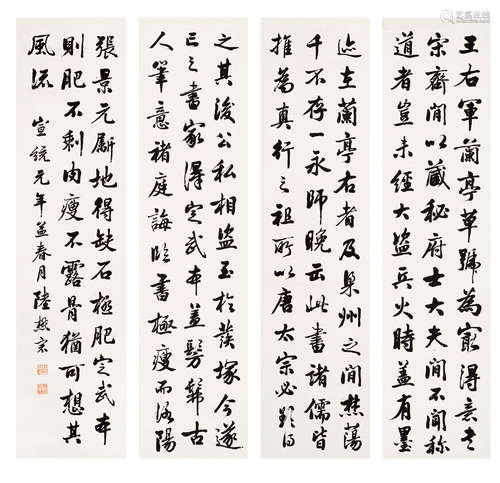 王右軍蘭亭草號為㝡得意書
宋齊間以藏秘府士大夫間不聞稱
道者豈未經大盜兵火時蓋有墨
迹在蘭亭右者及梁州之間焚蕩
千不存一永師晚云此書諸儒皆
推為真行之祖所以唐太宗必欲得
之其後公私相盜至於發塚今遂
亡之書家得定武本蓋髣髴古
人筆意褚庭誨臨書極瘦而洛陽
張景元斸地得缺石極肥定武本
則肥不剩肉瘦不露骨猶可想其
風流 宣統元年孟春月陸懋宗